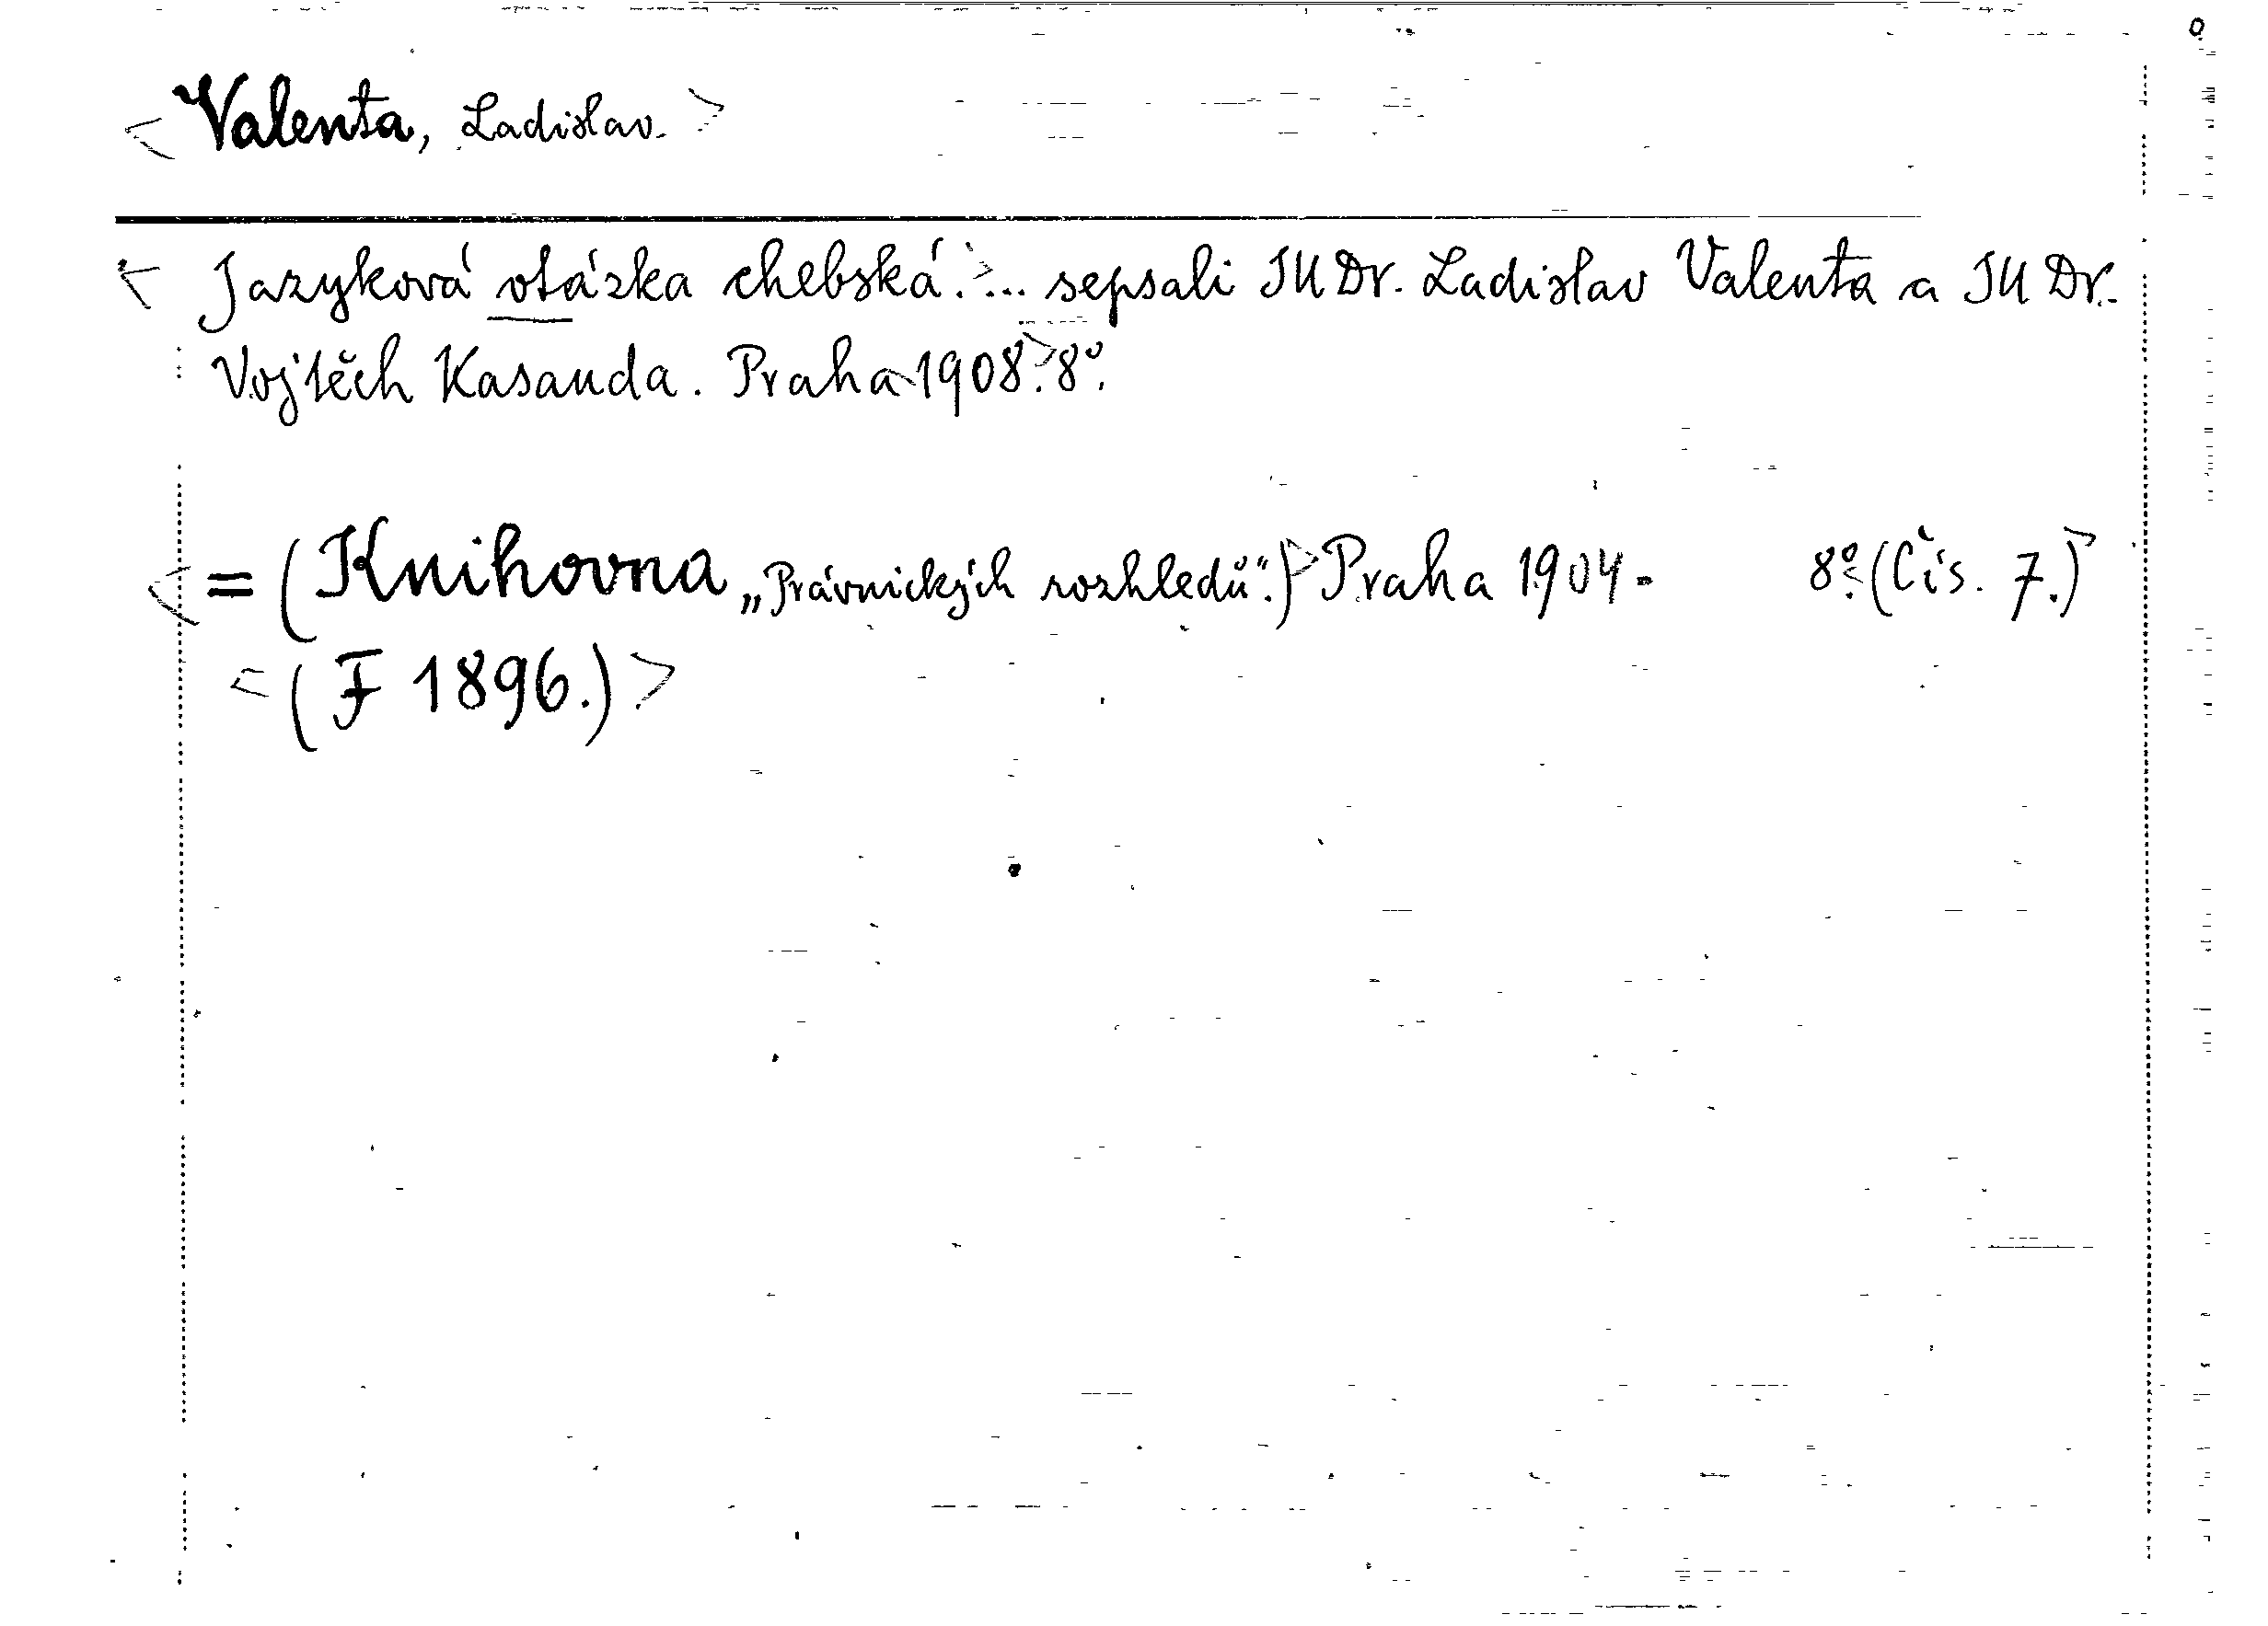 < Valenta, Ladislav. >
< Jazyková otázka chebská.> ... sepsali JUDr. Ladislav Valenta a JUDr.
Vojtěch Kasanda. Praha<1908.>8º.
<= (Knihovna „Právnických rozhledů“.)> Praha 1904- 8º.<(Čís. 7.)>
<(F 1896.)>